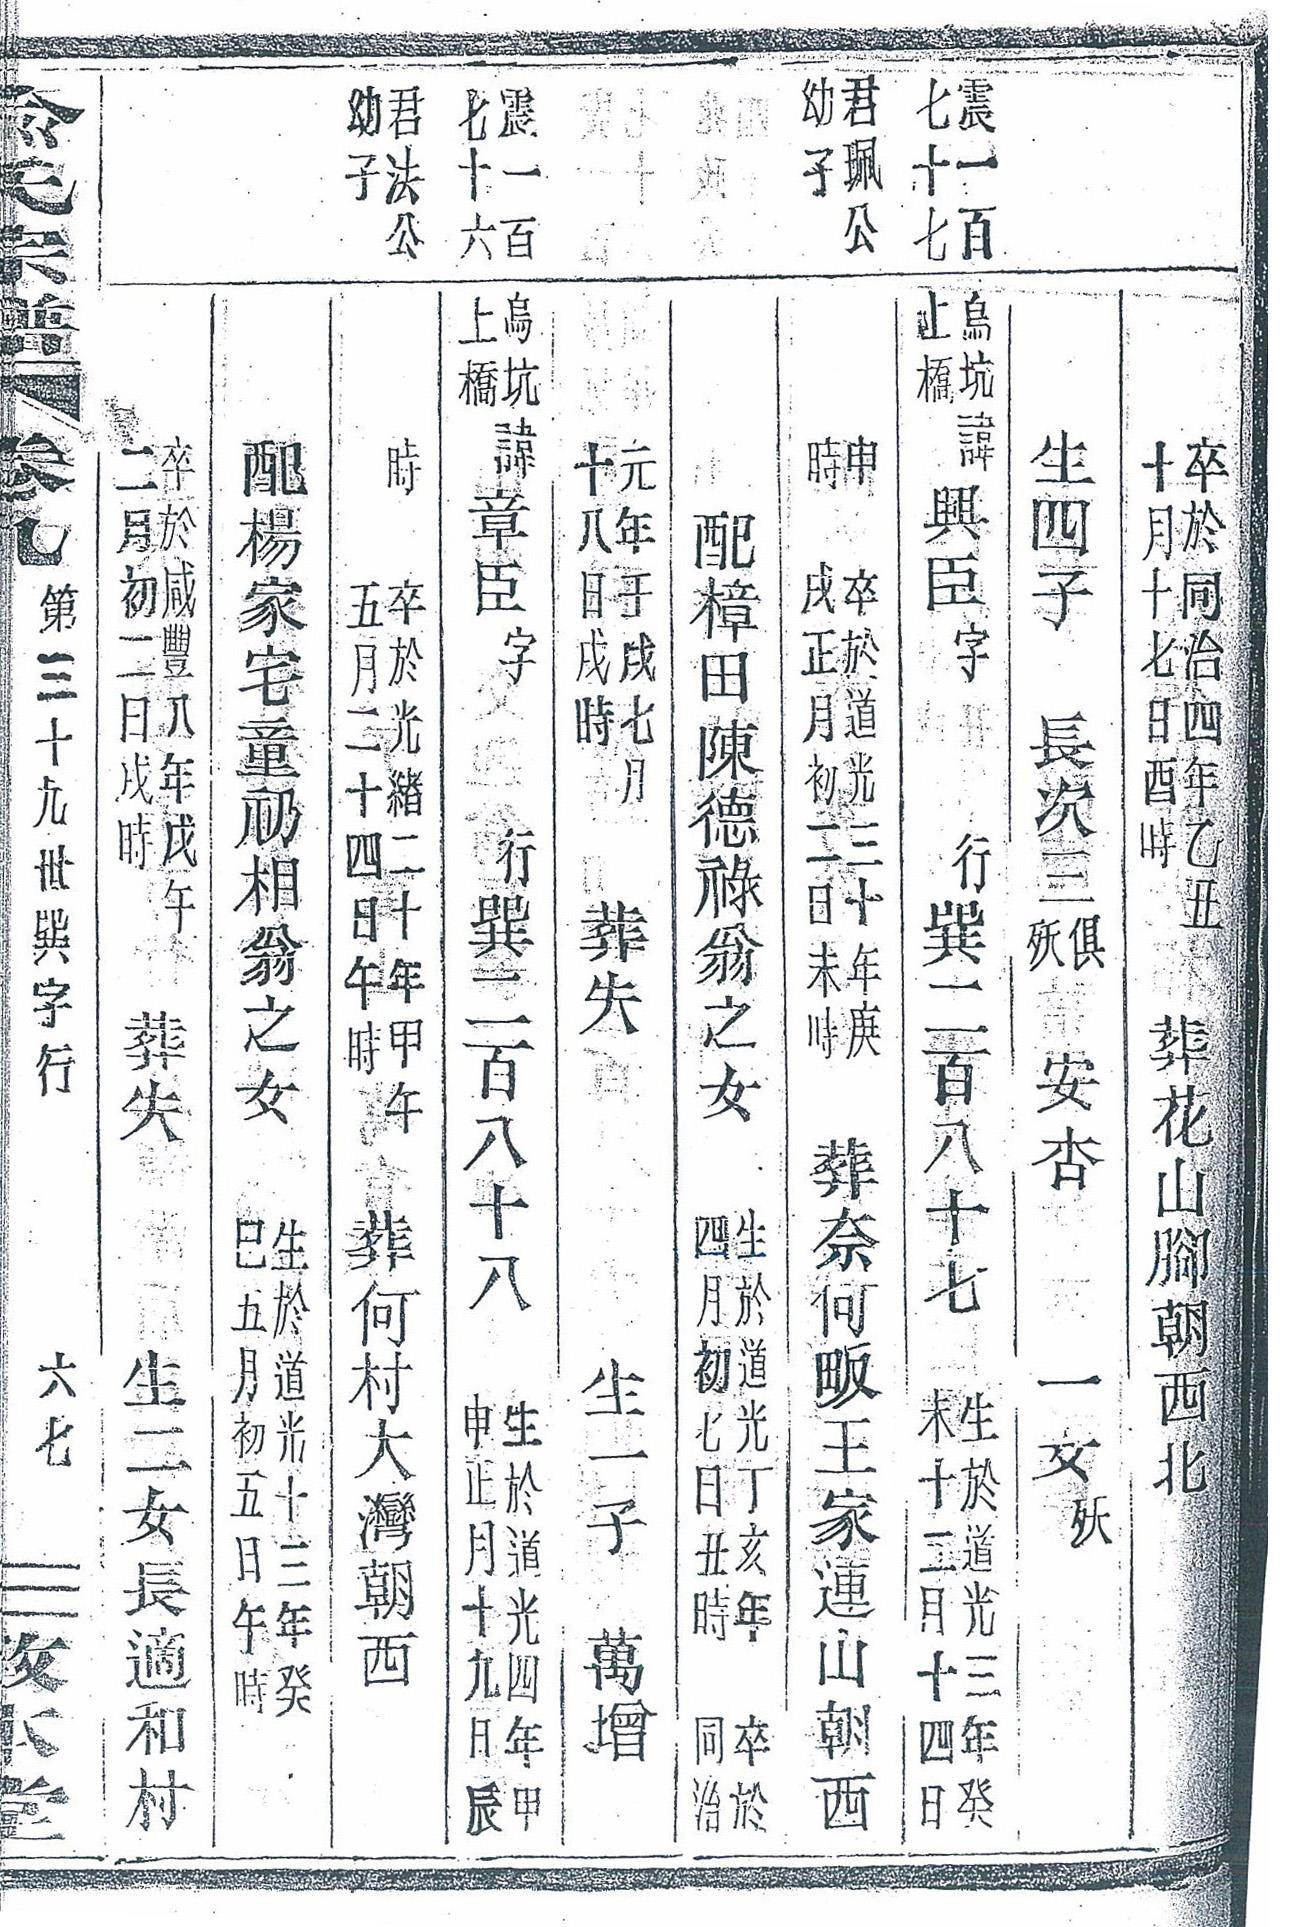 卒於同治四年乙丑
十月十七日酉時
葬花山腳朝西北
生四子 長次三
俱
殀
安杏 一女
殀
震一百
七十七
烏坑
上橋
諱
興臣
字
行
巽二百八十七
生於道光三年癸
未十二月十四日
君珮公
幼子
申
時
卒於道光三十年庚
戌正月初二日未時
葬奈何畈王家連山朝西
配樟田陳德祿翁之女
生於道光丁亥年
四月初七日丑時
卒於
同治
元年壬戌七月
十八日戌時
葬失 生一子 萬增
震一百
七十六
烏坑
上橋
諱
章臣
字
行
巽二百八十八
生於道光四年甲
申正月十九日辰
君法公
幼子
時
卒於光緒二十年甲午
五月二十四日午時
葬何村大灣朝西
配楊家宅童礽相翁之女
生於道光十三年癸
巳五月初五日午時
卒於咸豐八年戊午
二月初二日戌時
葬失 生二女長適和村
氏宗譜
卷九
第三十九世巽字行
六七
敦本堂